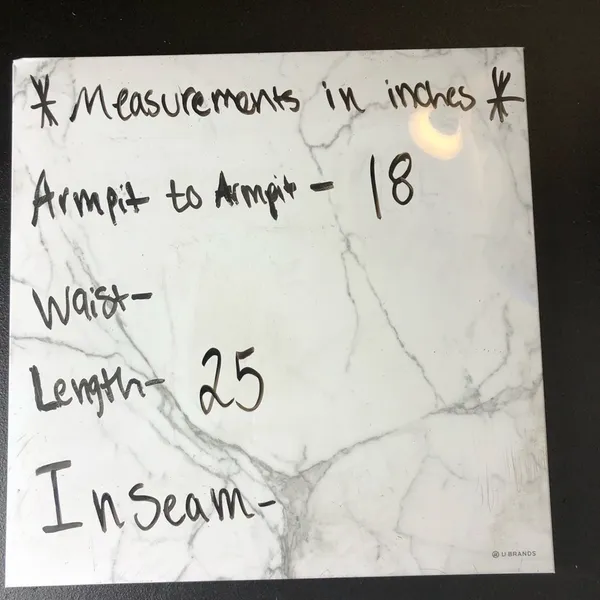 * Measurements in inches *
Armpit to Armpit - 18
Waist-
Length- 25
Inseam-
U BRANDS